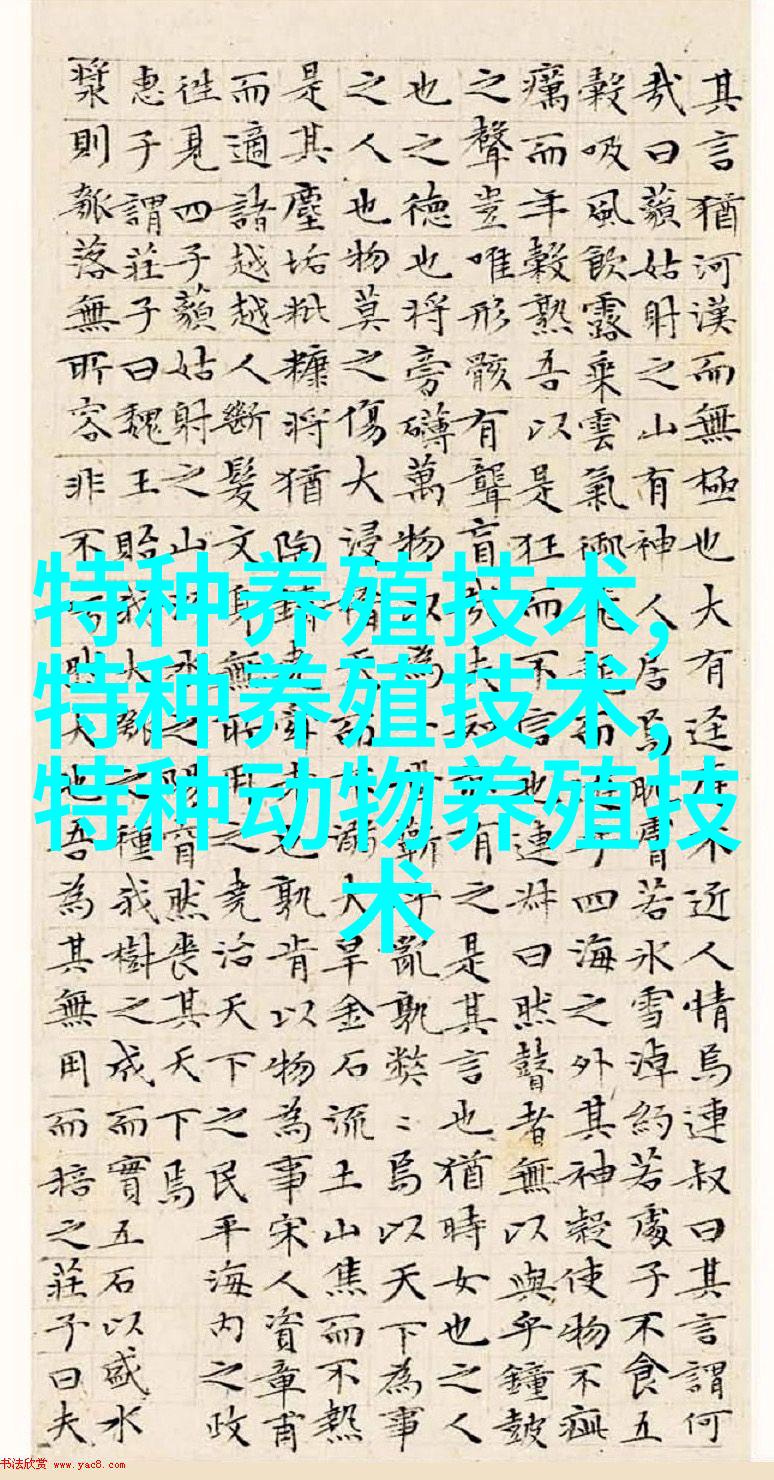 其言猶河漢而無極也大有逕庭不近人情焉連叔曰其言謂何
哉曰藐姑射之山有神人居焉肌膚若氷雪淖約若處子不食五
穀吸風飲露乘雲氣御飛龍而遊乎四海之外其神凝使物不疵
癘而年穀熟吾以是狂而不言也連叔曰然瞽者無以與乎鐘皷
之聲豈唯形骸有聾盲哉夫知亦有之是其言也猶時女也之人
也之德也將旁礴萬物以為一世蘄乎亂孰獘〻焉以天下為事
之人也物莫之傷大浸稽天而不溺大旱金石流土山焦而不熱
是其塵垢粃糠將猶陶鑄堯舜者也孰肯以物為事宋人資章甫
而適諸越越人斷髮文身無所用之堯治天下之民平海内之政
往見四子藐姑射之山汾水之陽窅然喪其天下焉
惠子謂莊子曰魏王貽我大瓠之種我樹之成而實五石以盛水
漿則瓠落無所容非不呺然大也吾為其無用而掊之莊子曰夫
特种养殖技术,
特种养殖技术,
特种动物养殖技
术
书法欣赏 www.yac8.com